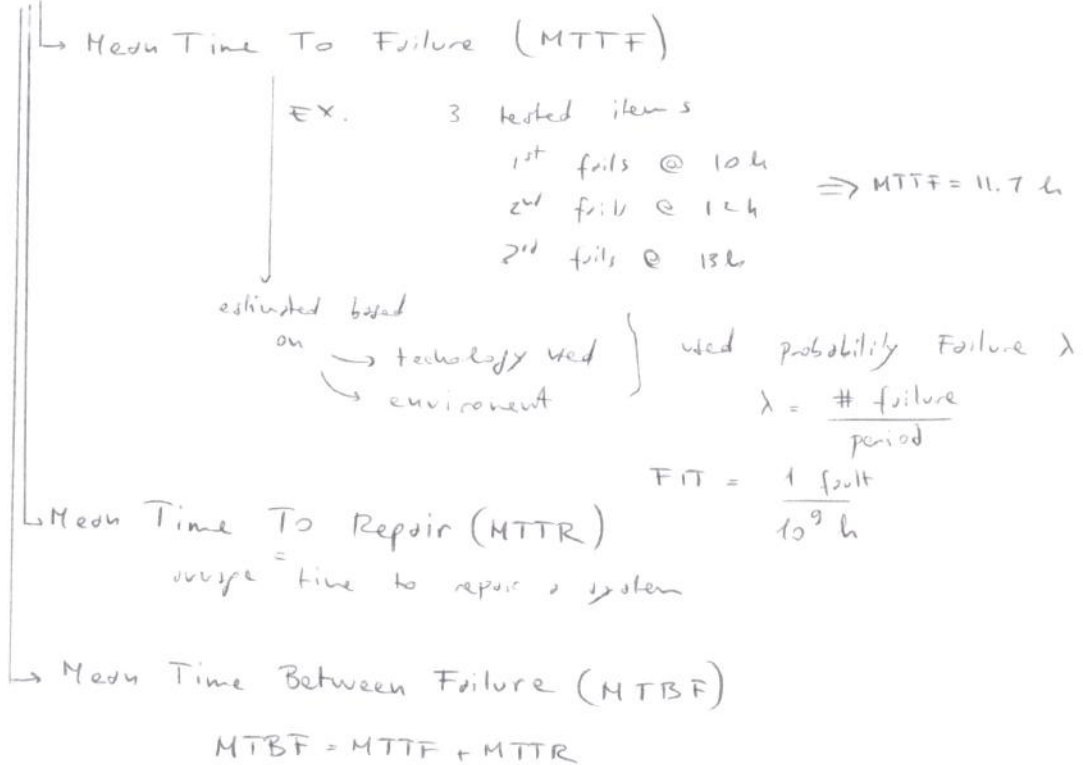 Mean Time To Failure (MTTF)
EX. 3 tested items
1st fails @ 10h
2nd fails @ 12h
3rd fails @ 13h
=> MTTF = 11.7 h
estimated based
on
techology used
enviroment
used probability Failure λ
λ = # failure / period
FIT = 1 fault / 10^9 h
Mean Time To Repair (MTTR)
= average time to repair a system
Mean Time Between Failure (MTBF)
MTBF = MTTF + MTTR